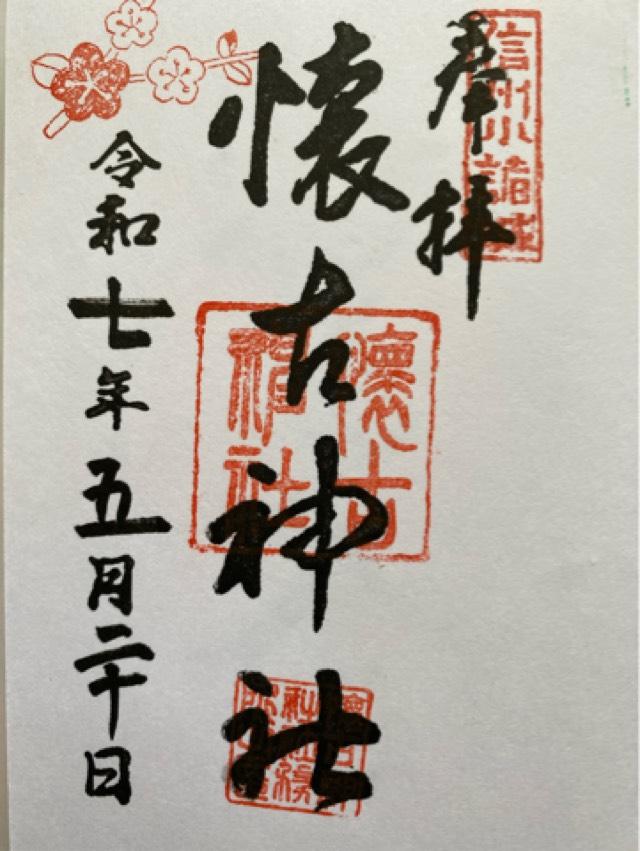 奉拝
信州小諸城
懐古神社
懐古神社
令和七年五月二十日